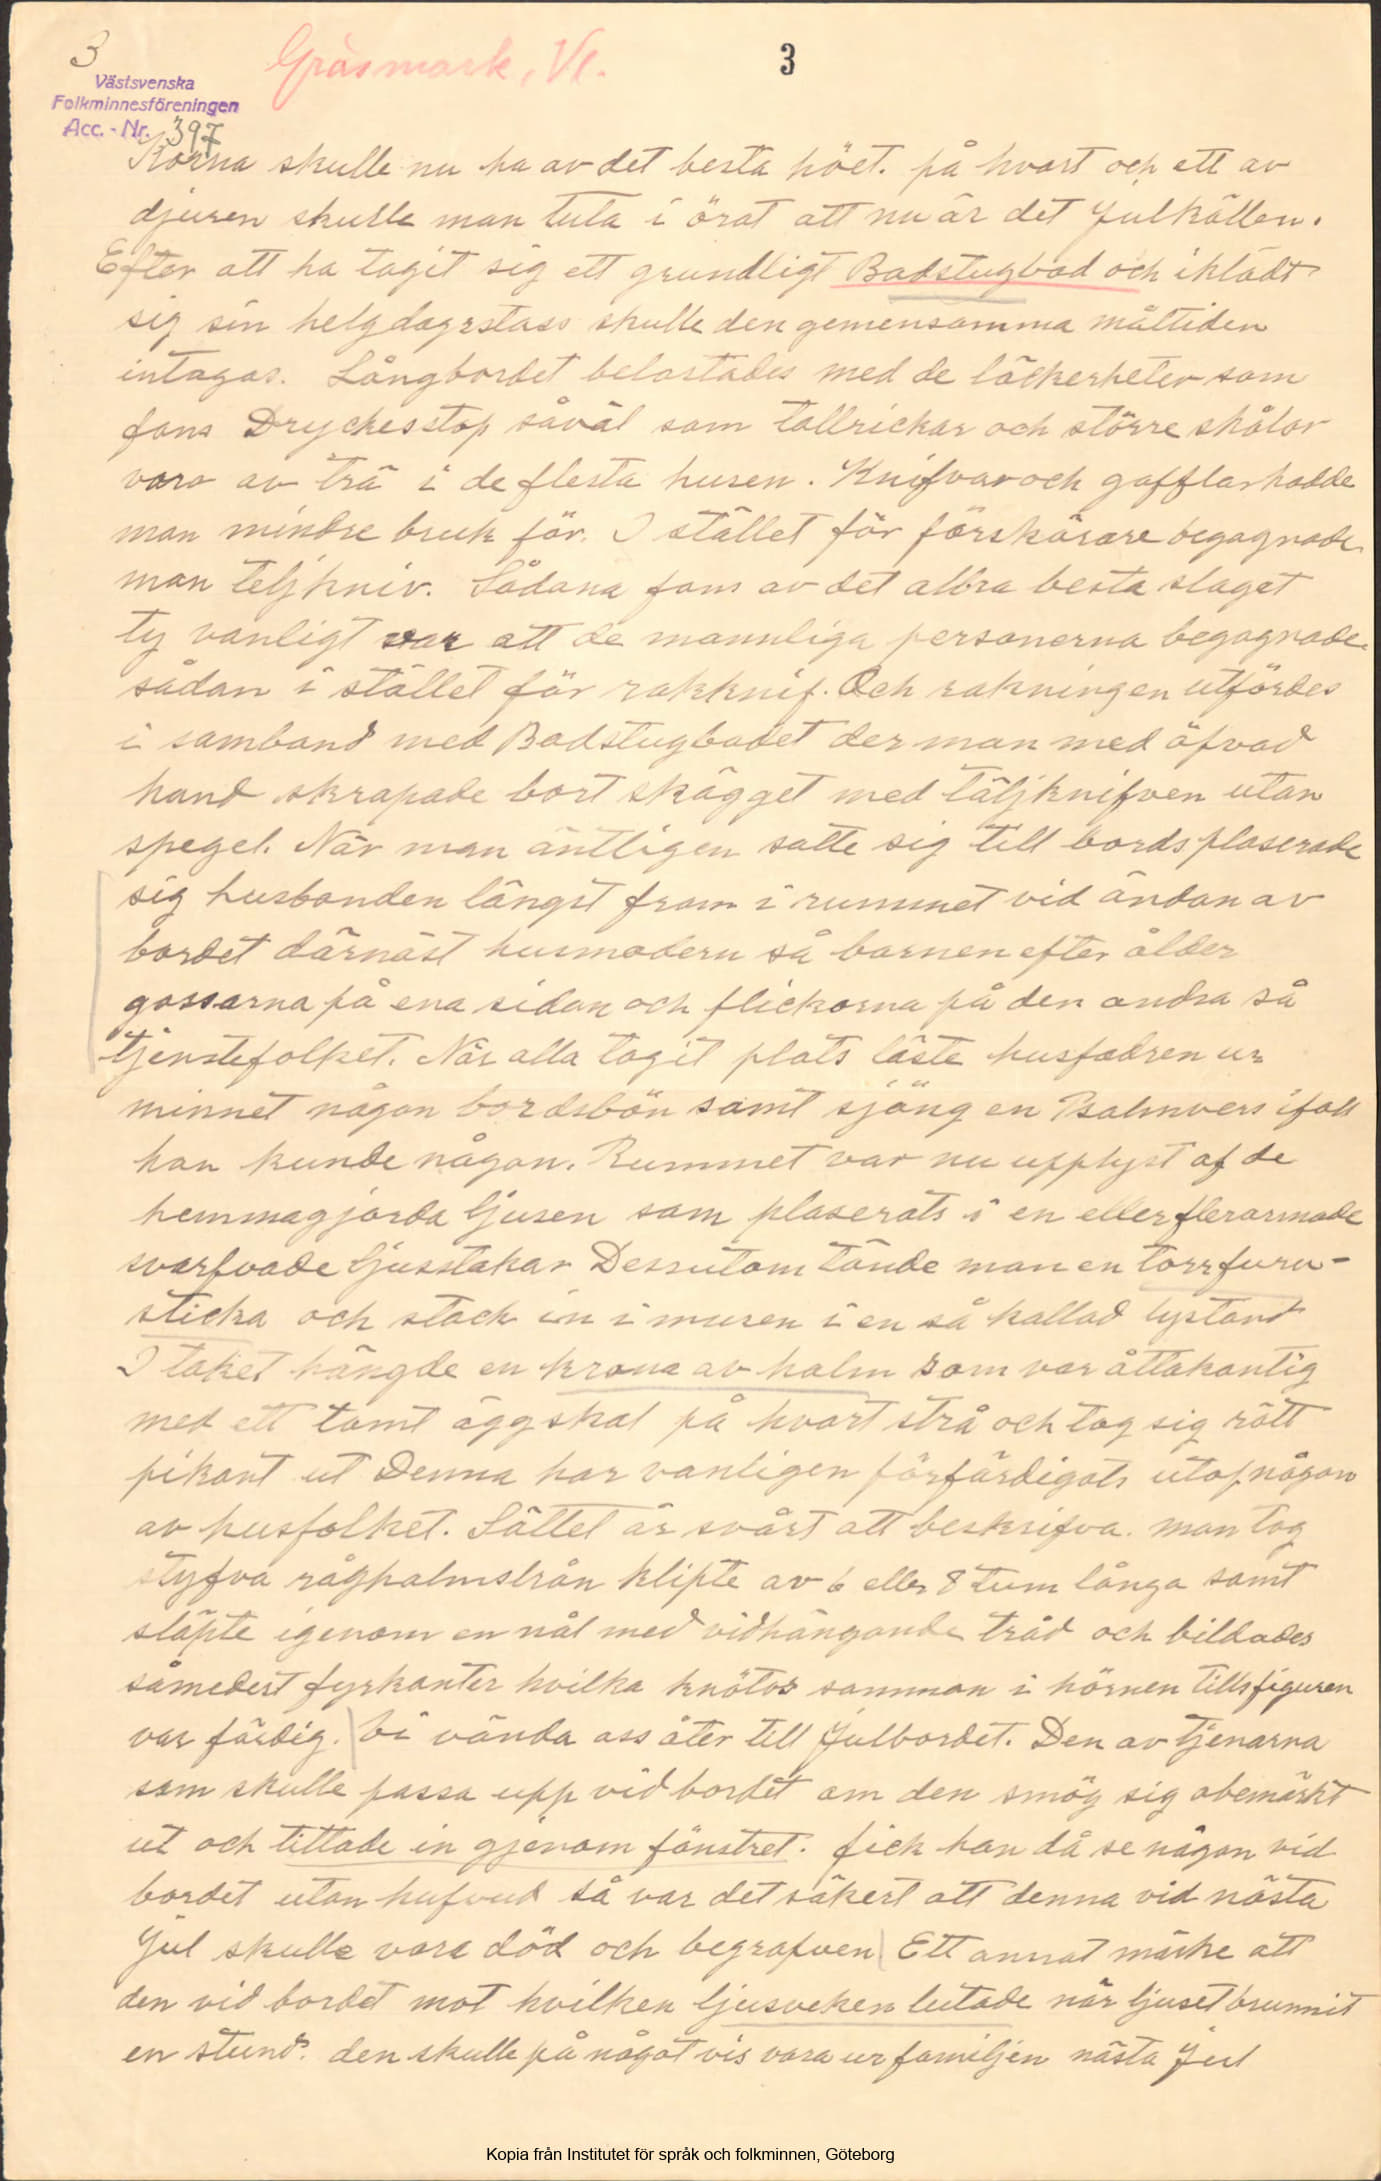 3
Gräsmark, Vl.
3
Västsvenska
Folkminnesföreningen
Acc.-Nr. 397
Korna skulle nu ha av det besta höet. på hvart och ett av
djuren skulle man tuta i örat att nu är det Julkällen.
Efter att ha tagit sig ett grundligt Badstugbad och iklädt
sig sin helgdagsstass skulle den gemensamma måltiden
intagas. Långbordet belastades med de läckerheter som
fans Dryckesstop såväl som tallrickar och större skålar
voro av trä i de flesta husen. Knifvar och gafflar hadde
man mindre bruk för. I stället för förskärare begagnade
man teljkniv. Sådana fans av det allra besta slaget
ty vanligt var att de mannliga personerna begagnade
sådan i stället för rakknif. Och rakningen utfördes
i samband med Badstugbadet der man med öfvad
hand skrapade bort skägget med täljknifven utan
spegel. När man äntligen satte sig till bords plaserade
sig husbonden längst fram i rummet vid ändan av
bordet därnäst husmodern så barnen efter ålder
gossarna på ena sidan och flickorna på den andra så
tjenstefolket. När alla tagit plats läste husfadren ur
minnet någon bordsbön samt sjöng en Psalmvers ifall
han kunde någon. Rummet var nu upplyst af de
hemmagjorda ljusen som plaserats i en eller flerarmade
svarfvade ljusstakar Dessutom tände man en torrfuru-
sticka och stack in i muren i en så kallad lystand
I taket hängde en krona av halm som var åttakantig
med ett tomt äggskal på hvart strå och tog sig rätt
pikant ut Denna har vanligen förfärdigats utaf någon
av husfolket. Sättet är svårt att beskrifva. man tog
styfva råghalmstrån klipte av 6 eller 8 tum långa samt
släpte igenom en nål med vidhängande tråd och bildades
såmedest fyrkanter hvilka knötos samman i hörnen tills figuren
var färdig. Vi vända oss åter till Julbordet. Den av tjenarna
som skulle passa upp vid bordet om den smög sig obemärkt
ut och tittade in gjenom fönstret. fick han då se någon vid
bordet utan hufvud så var det säkert att denna vid nästa
Jul skulle vara död och begrafven Ett annat märke att
den vid bordet mot hvilken ljusveken lutade när ljuset brunnit
en stund. den skulle på något vis vara ur familjen nästa Jul
Kopia från Institutet för språk och folkminnen, Göteborg